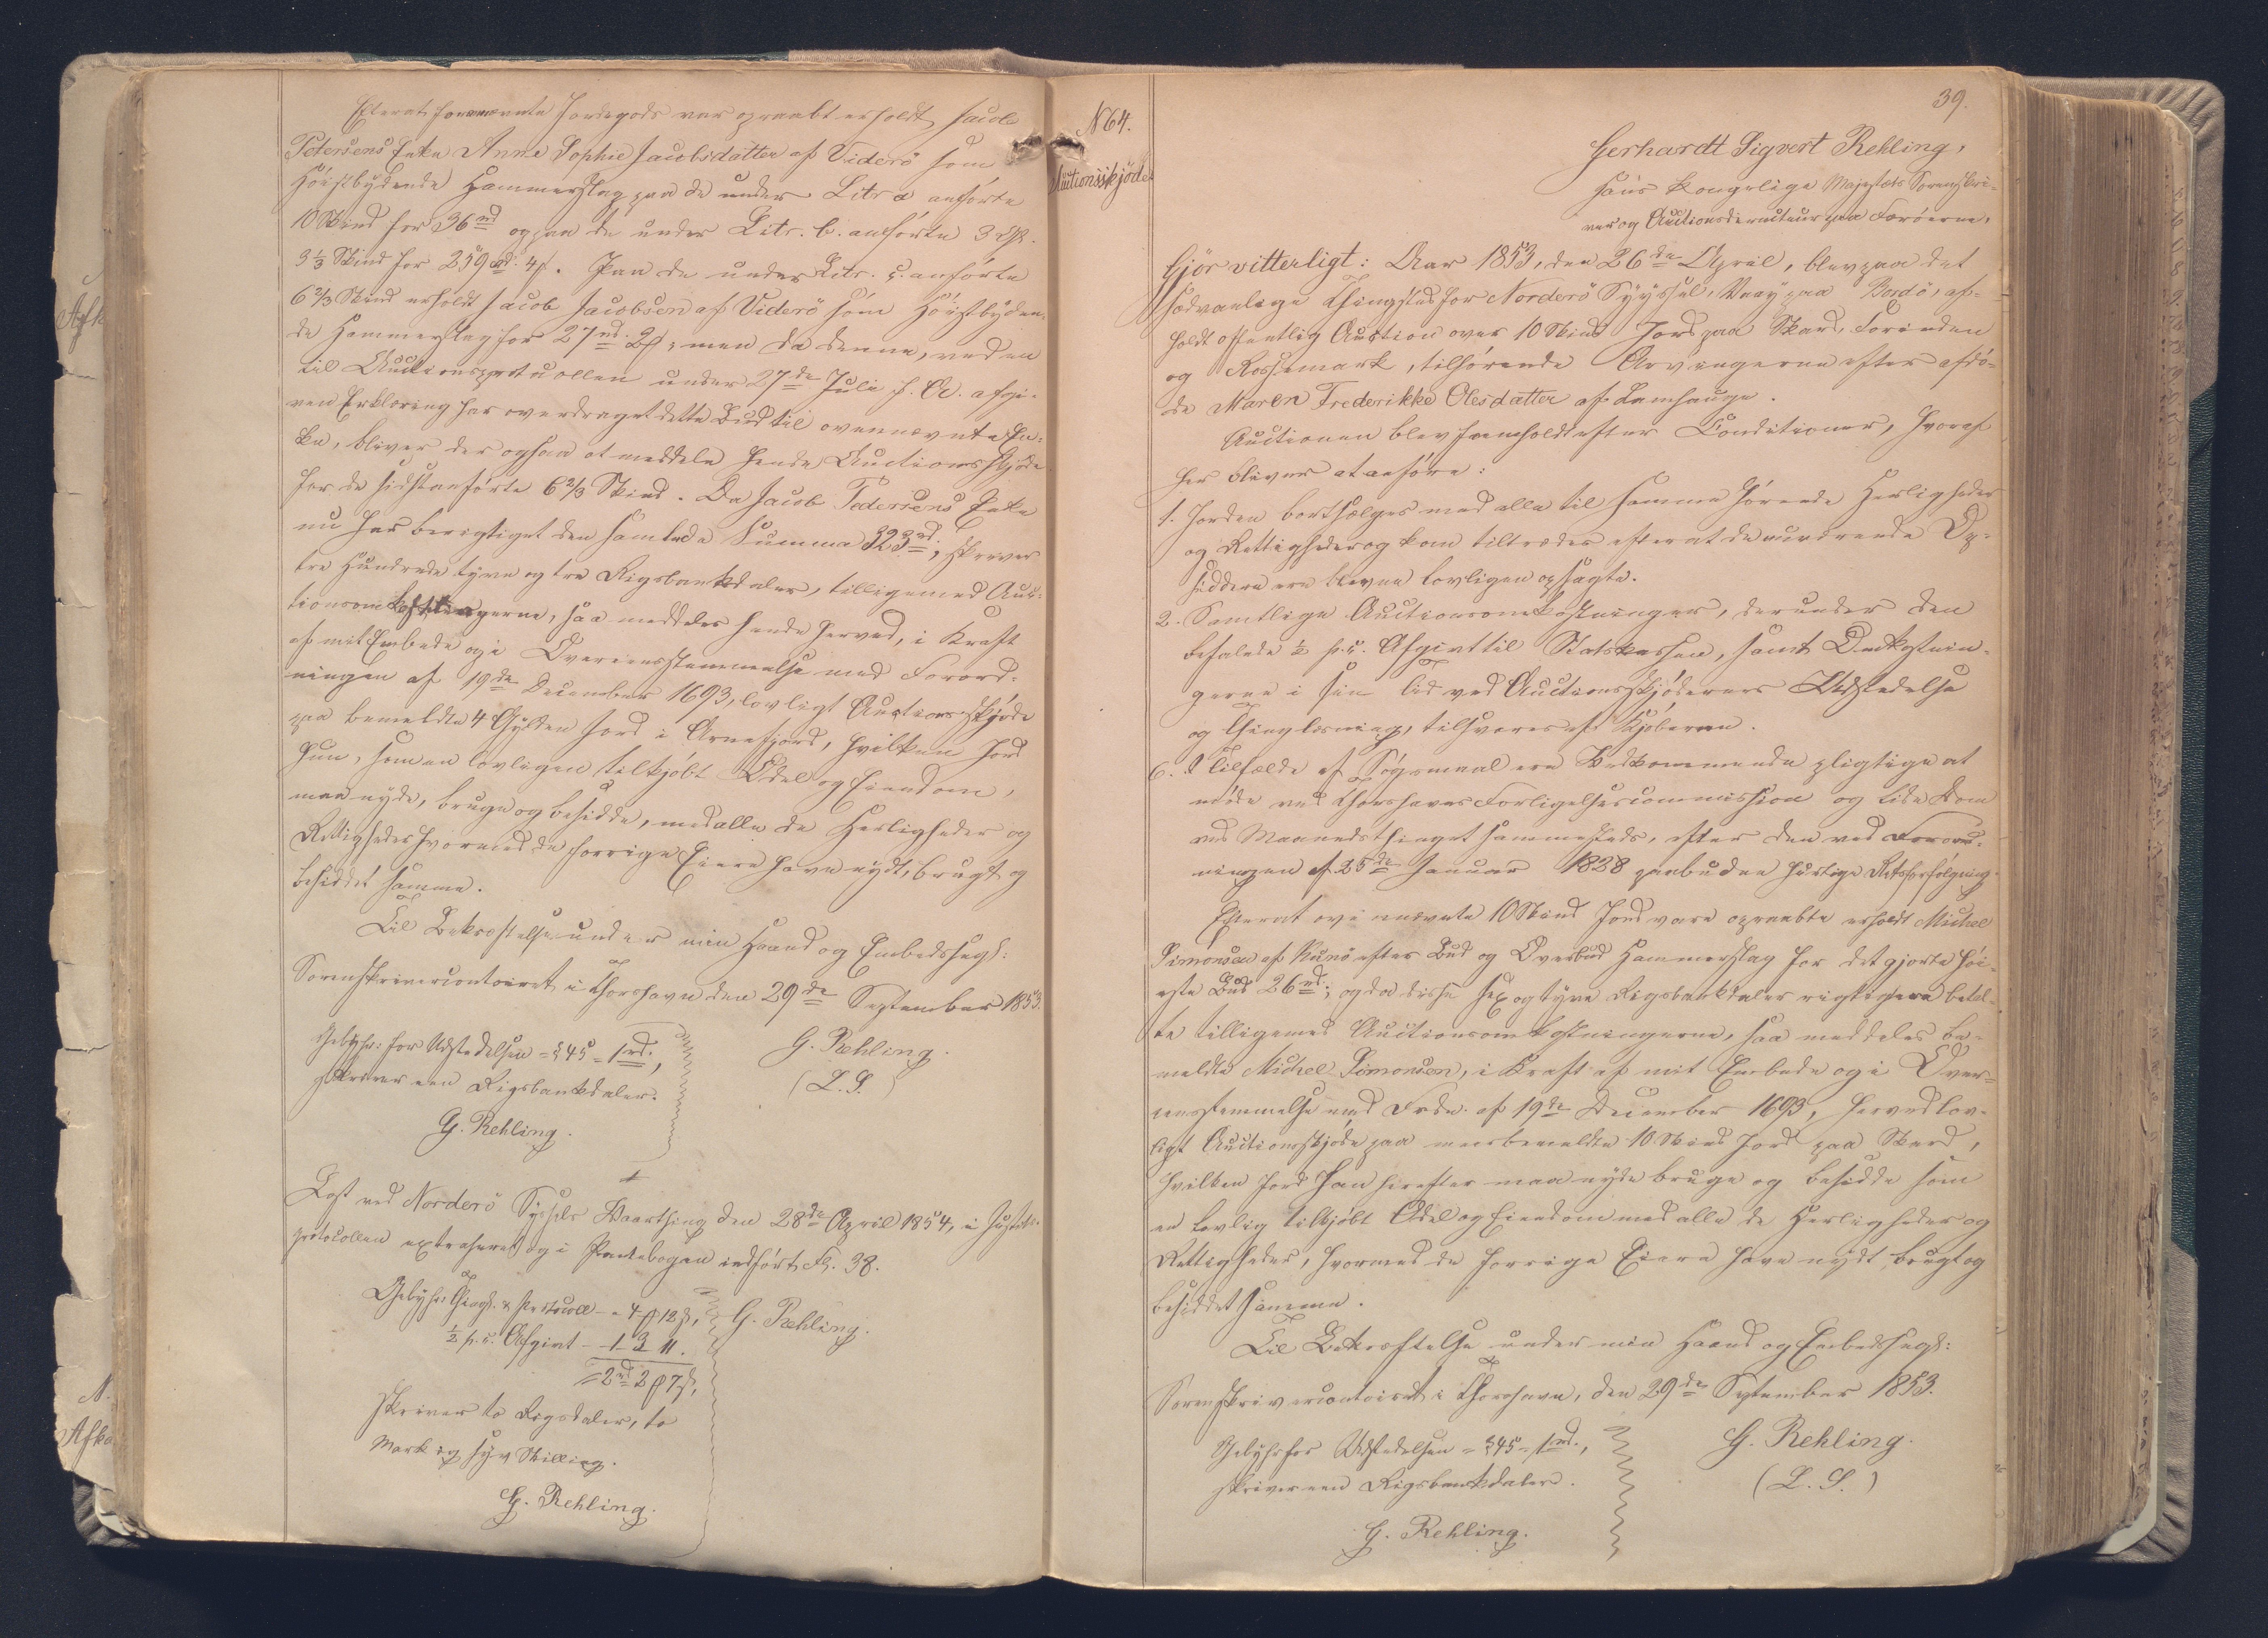 Efterat fornævnte Jordegods var opraabt erholdt Jacob
Petersens Enke Anne Sophie Jacobsdatter af Viderö som
Höistbydende Hammerslag paa de under Litr a anförte
10 Skind for 36 rd og paa de under Litr. b. anförte 3 Gl.
3 1/3 Skind for 259 rd. 4 ℳ. Paa de under Litr. c. anförte
6 2/3 Skind erholdt Jacob Jacobsen af Viderö som Höistbyden-
de Hammerslag for 27 rd 2 ℳ; men da denne, ved en
til Auctionsprotocollen under 27de Juli f. A. afgi-
ven Erklæring har overdraget dette Bud til ovennævnte En-
ke, bliver der ogsaa at meddele hende Auctionsskjöde
for de sidstanförte 6 2/3 Skind. Da Jacob Pedersens Enke
nu har berigtiget den samlede Summa 323 rd., skriver
tre Hundrede tyve og tre Rigsbankdaler, tilligemed Auc-
tionsomkostningerne, saa meddeles hende herved, i Kraft
af mit Embede og i Overeensstemmelse med Forord-
ningen af 19de December 1693, lovligt Auctionsskjöde
paa bemeldte 4 Gylden Jord i Arnefjord, hvilken Jord
hun, som en lovligen tilkjöbt Odel og Eiendom,
maa nyde, bruge og besidde, med alle de Herligheder og
Rettigheder hvormed de forrige Eiere have nydt, brugt og
besiddet samme.
Til Bekræftelse under min Haand og Embedssegl:
Sorenskrivercontoiret i Thorshavn den 29de September 1853.
Gebyhr: for Udstedelsen = § 45 = 1 rd.,
skriver een Rigsbankdaler.
G. Rehling.
G. Rehling.
(L. S.)
Læst ved Norderö Syssels Vaarthing den 28de April 1854, i Justits-
protocollen extraheret og i Pantebogen indfört Fol. 38.
Gebyhr: Thingl. & Protocoll - " 4 ℳ 12 ß,
1/2 p. c. Afgivt - 1 - 3 11.
= 2 rd 2 ℳ 7 ß,
skriver to Rigsdaler, to
Mark og syv Skilling.
G. Rehling.
G. Rehling.
39.
N 64.
Auctionsskjöde
Gerhardt Sigvert Rehling,
Hans Kongelige Majestæts Sorenskri-
ver og Auctionsdirecteur paa Færöerne,
Gjör vitterligt: Aar 1853, den 26de April, blev paa det
sædvanlige Thingsted for Norderö Syyssel, Vaay paa Bordö, af-
holdt offentlig Auction over 10 Skind Jord paa Skard, Forinden
og Kossemark, tilhörende Arvingerne efter afdö-
de Maren Frederikke Olesdatter af Lamhauge.
Auctionen blev fremholdt efter Conditioner, hvoraf
her bliver at anföre:
1. Jorden bortsælges med alle til samme hörende Herligheder
og Rettigheder og kan tiltrædes efterat de nuværende Op-
siddere ere blevne lovligen opsagte.
2. Samtlige Auctionsomkostninger, derunder den
befalede 1/2 p. c. Afgivt til Statskassen, samt Omkostnin-
gerne i sin Tid ved Auctionsskjödernes Udstedelse
og Thinglæsning, tilsvares af Kjöberen.
6. I Tilfælde af Sögsmaal ere Vedkommende pligtige at
möde ved Thorshavns Forligelsescommission og lide Dom
ved Maanedsthinget sammesteds, efter den ved Forord-
ningen af 25de Januar 1828 paabudne hurtige Retsforfölgning.
Efterat ovennævnte 10 Skind Jord vare opraabte erholdt Michel
Simonsen af Kunö efter Bud og Overbud Hammerslag for det gjorte höi-
este Bud 26 rd.; og da disse sex og tyve Rigsbankdaler rigtig ere betal-
te tilligemed Auctionsomkostningerne, saa meddeles be-
meldte Michel Simonsen, i Kraft af mit Embede og i Over-
eensstemmelse med Frdn. af 19de December 1693, herved lov-
ligt Auctionsskjöde paa meerbemeldte 10 Skind Jord paa Skard,
hvilken Jord han herefter maa nyde bruge og besidde som
en lovlig tilkjöbt Odel og Eiendom med alle de Herligheder og
Rettigheder, hvormed de forrige Eiere have nydt, brugt og
besiddet samme.
Til Bekræftelse under min Haand og Embedssegl:
Sorenskrivercontoiret i Thorshavn, den 29de September 1853.
Gebyhr for Udstedelsen = § 45 = 1 rd.,
skriver een Rigsbankdaler.
G. Rehling.
G. Rehling.
(L. S.)